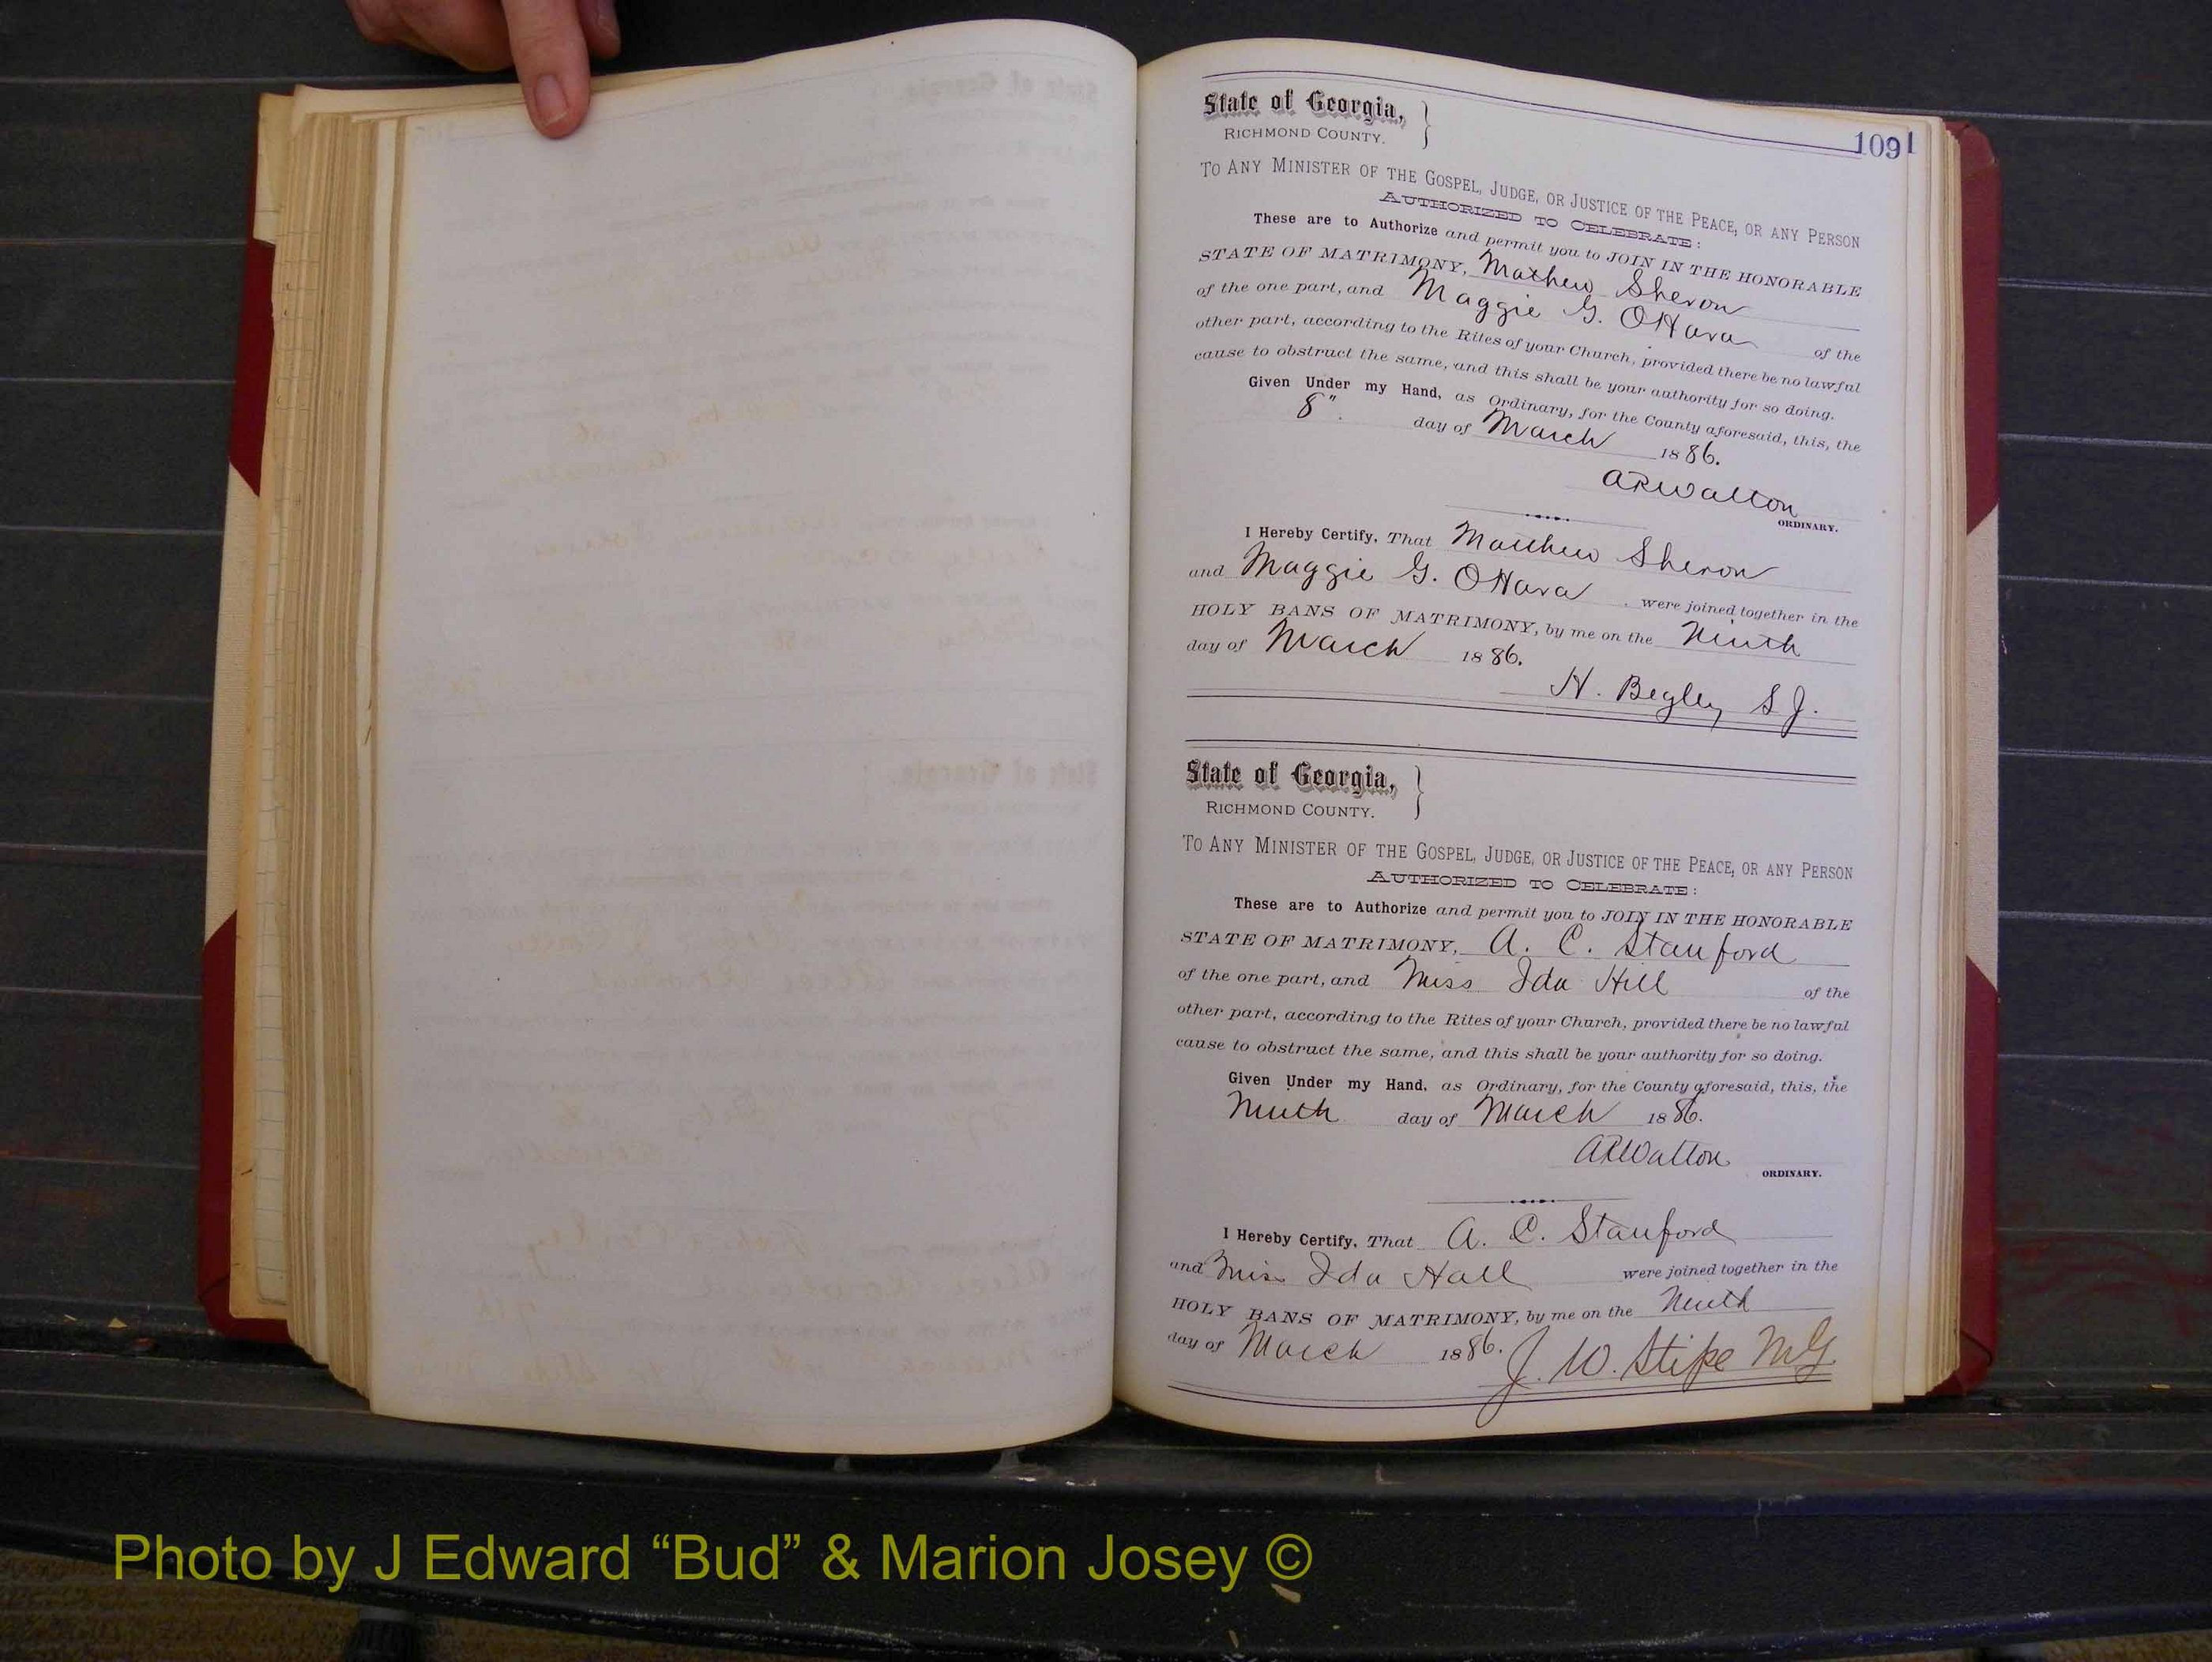 State of Georgia, }
RICHMOND COUNTY.
109
TO ANY MINISTER OF THE GOSPEL, JUDGE, OR JUSTICE OF THE PEACE, OR ANY PERSON
AUTHORIZED TO CELEBRATE:
These are to Authorize and permit you to JOIN IN THE HONORABLE
STATE OF MATRIMONY, Mathew Sheron
of the one part, and Maggie G. OHara of the
other part, according to the Rites of your Church, provided there be no lawful
cause to obstruct the same, and this shall be your authority for so doing.
Given Under my Hand, as Ordinary, for the County aforesaid, this, the
8" day of March 1886.
ARWalton
ORDINARY.
I Hereby Certify, That Matthew Sheron
and Maggie G. OHara were joined together in the
HOLY BANS OF MATRIMONY, by me on the Ninth
day of March 1886.
H. Begley SJ.
State of Georgia, }
RICHMOND COUNTY.
TO ANY MINISTER OF THE GOSPEL, JUDGE, OR JUSTICE OF THE PEACE, OR ANY PERSON
AUTHORIZED TO CELEBRATE:
These are to Authorize and permit you to JOIN IN THE HONORABLE
STATE OF MATRIMONY, A. C. Stanford
of the one part, and Miss Ida Hill of the
other part, according to the Rites of your Church, provided there be no lawful
cause to obstruct the same, and this shall be your authority for so doing.
Given Under my Hand, as Ordinary, for the County aforesaid, this, the
Ninth day of March 1886.
ARWalton
ORDINARY.
I Hereby Certify, That A. C. Stanford
and Miss Ida Hall were joined together in the
HOLY BANS OF MATRIMONY, by me on the Ninth
day of March 1886.
J. W. Stipe MG.
Photo by J Edward “Bud” & Marion Josey ©